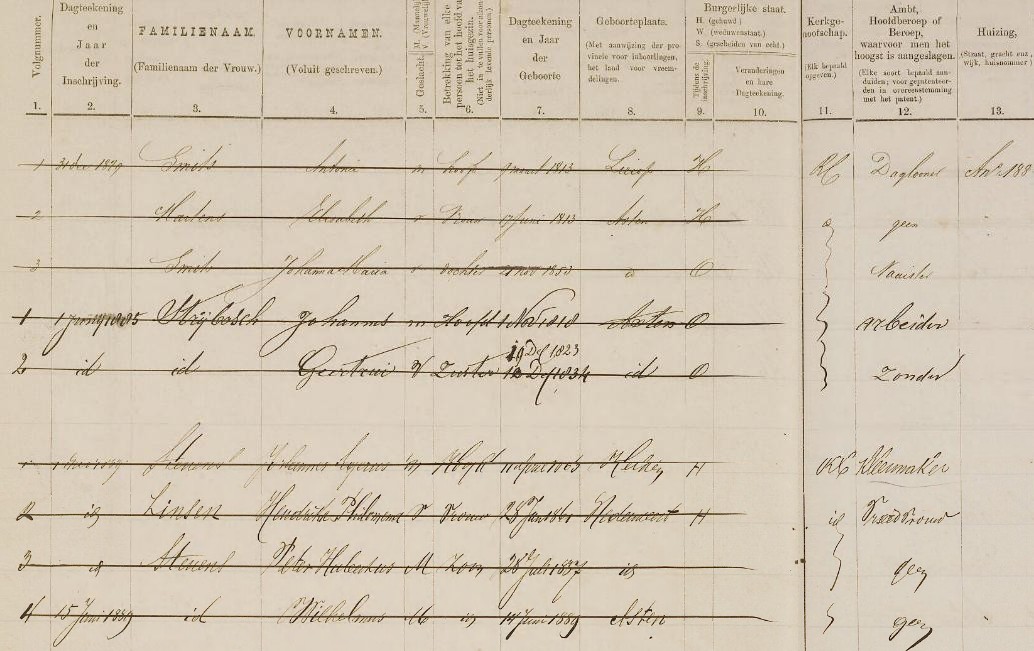 Volgnummer.
Dagteekening en Jaar der Inschrijving.
FAMILIENAAM.
(Familienaam der Vrouw.)
VOORNAMEN.
(Voluit geschreven.)
Geslacht.
Betrekking van elke persoon tot het hoofd van het huisgezin.
Dagteekening en Jaar der Geboorte
Geboorteplaats.
(Met aanwijzing der provincie voor inboorlingen, het land voor vreemdelingen.
Burgerlijke staat.
H. (gehuwd)
W. (weduwenstaat.)
S. (gescheiden van echt.)
Tijdens de inschrijving.
Veranderingen en hare Dagteekening.
Kerkgenootschap.
(Elk bepaald opgeven.)
Ambt, Hoofdberoep of Beroep, waarvoor men het hoogst is aangeslagen.
(Elke soort bepaald aanduiden; voor gepatenteerden in overeenstemming met het patent.)
Huizing,
(Straat, gracht enz., wijk, huisnummer
1. 2. 3. 4. 5. 6. 7. 8. 9. 10. 11. 12. 13.
1 31 dec 1879 Smits Antonie m hoofd maart 1813 Lierop H RC Daglooner
2 Martens Elisabeth v Vrouw 17 Juni 1813 Asten H geen
3 Smits Johanna Maria v dochter 21 nov 1853 O Naaister
1 1885 Strijbosch Johannes m Hoofd 1 Nov 1818 Asten O arbeider
19 Dec 1823
2 id id Geertrui V Zuster 12 Dec 1834 id O Zonder
1 Stevens Johannes m Hoofd H RC Kleermaker
2 id Linsen Hendrika Philomena V Vrouw 28 Jan 1861 Nederweert H id
3 id Stevens Peter Hubertus M Zoon 28 Juli 1887 id geen
4 15 Juni 1889 id Wilhelmus M id 14 Juni 1889 Asten geen